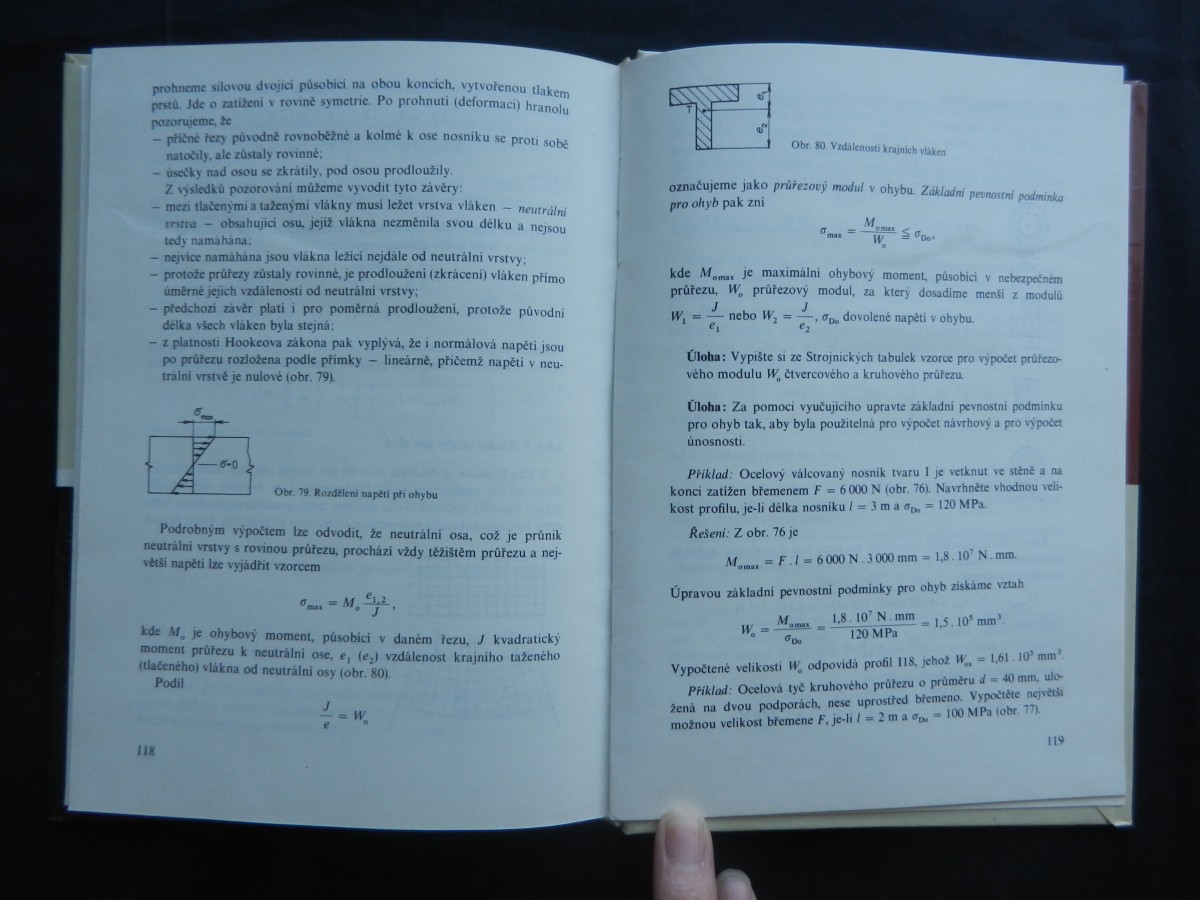 prohneme silovou dvojicí působící na obou koncích, vytvořenou tlakem
prstů. Jde o zatížení v rovině symetrie. Po prohnutí (deformaci) hranolu
pozorujeme, že
– příčné řezy původně rovnoběžné a kolmé k ose nosníku se proti sobě
natočily, ale zůstaly rovinné;
– úsečky nad osou se zkrátily, pod osou prodloužily.
Z výsledků pozorování můžeme vyvodit tyto závěry:
– mezi tlačenými a taženými vlákny musí ležet vrstva vláken – neutrální
vrstva – obsahující osu, jejíž vlákna nezměnila svou délku a nejsou
tedy namáhána;
– nejvíce namáhána jsou vlákna ležící nejdále od neutrální vrstvy;
– protože průřezy zůstaly rovinné, je prodloužení (zkrácení) vláken přímo
úměrné jejich vzdálenosti od neutrální vrstvy;
– předchozí závěr platí i pro poměrná prodloužení, protože původní
délka všech vláken byla stejná;
– z platnosti Hookeova zákona pak vyplývá, že i normálová napětí jsou
po průřezu rozložena podle přímky – lineárně, přičemž napětí v neu-
trální vrstvě je nulové (obr. 79).
σmax
σ=0
Obr. 79. Rozdělení napětí při ohybu
Podrobným výpočtem lze odvodit, že neutrální osa, což je průnik
neutrální vrstvy s rovinou průřezu, prochází vždy těžištěm průřezu a nej-
větší napětí lze vyjádřit vzorcem
σmax = Mo e1,2/J ,
kde Mo je ohybový moment, působící v daném řezu, J kvadratický
moment průřezu k neutrální ose, e1 (e2) vzdálenost krajního taženého
(tlačeného) vlákna od neutrální osy (obr. 80).
Podíl
J/e = Wo
118
T
e1
e2
Obr. 80. Vzdálenosti krajních vláken
označujeme jako průřezový modul v ohybu. Základní pevnostní podmínka
pro ohyb pak zní
σmax = Momax/Wo ≦ σDo,
kde Momax je maximální ohybový moment, působící v nebezpečném
průřezu, Wo průřezový modul, za který dosadíme menší z modulů
W1 = J/e1 nebo W2 = J/e2, σDo dovolené napětí v ohybu.
Úloha: Vypište si ze Strojnických tabulek vzorce pro výpočet průřezo-
vého modulu Wo čtvercového a kruhového průřezu.
Úloha: Za pomoci vyučujícího upravte základní pevnostní podmínku
pro ohyb tak, aby byla použitelná pro výpočet návrhový a pro výpočet
únosnosti.
Příklad: Ocelový válcovaný nosník tvaru I je vetknut ve stěně a na
konci zatížen břemenem F = 6 000 N (obr. 76). Navrhněte vhodnou veli-
kost profilu, je-li délka nosníku l = 3 m a σDo = 120 MPa.
Řešení: Z obr. 76 je
Momax = F . l = 6 000 N . 3 000 mm = 1,8 . 10⁷ N . mm.
Úpravou základní pevnostní podmínky pro ohyb získáme vztah
Wo = Momax/σDo = 1,8 . 10⁷ N . mm/120 MPa = 1,5 . 10⁵ mm³.
Vypočtené velikosti Wo odpovídá profil I18, jehož Wox = 1,61 . 10⁵ mm³.
Příklad: Ocelová tyč kruhového průřezu o průměru d = 40 mm, ulo-
žená na dvou podporách, nese uprostřed břemeno. Vypočtěte největší
možnou velikost břemene F, je-li l = 2 m a σDo = 100 MPa (obr. 77).
119